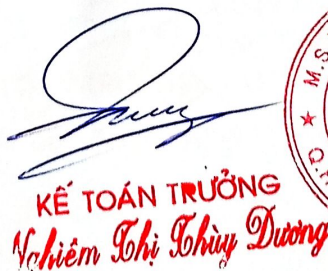 KẾ TOÁN TRƯỞNG
Nghiêm Thị Thùy Dương
★ M.S